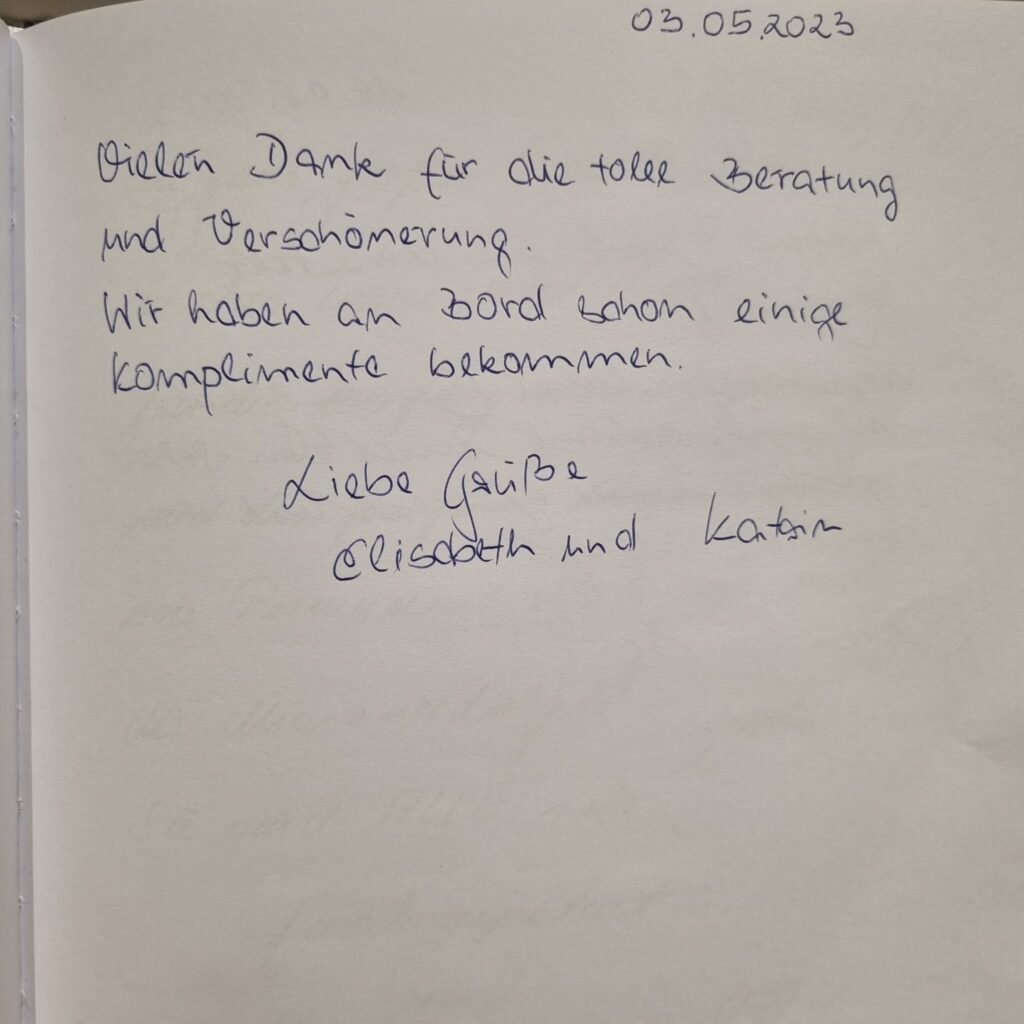 03.05.2023
Vielen Dank für die tolle Beratung
und Verschönerung.
Wir haben an Bord schon einige
Komplimente bekommen.
Liebe Grüße
Elisabeth und Katrin